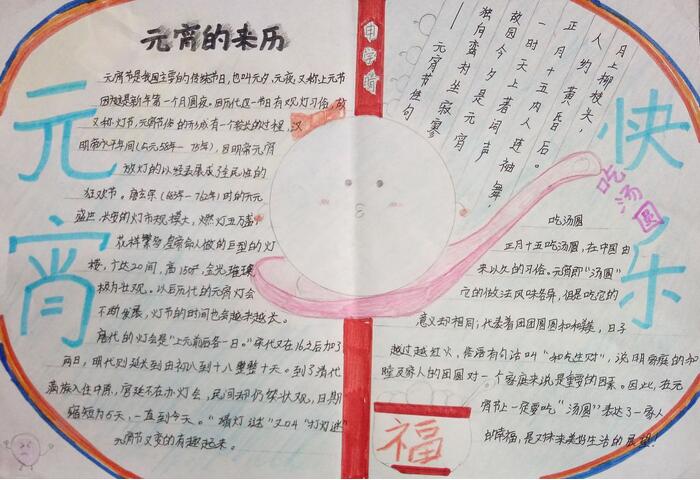 元宵
快乐
元宵的来历
元宵节是我国主要的传统节日,也叫元夕、元夜,又称上元节
因为这是新年第一个月圆夜。因历代这一节日有观灯习俗,故
又称灯节,元宵节俗的形成有一个较长的过程,汉
明帝永平年间(公元58年—75年),因明帝
放灯的
狂欢节。唐玄宗(685年—762年)时的开元
盛世,长安的灯市规模大,燃灯五万盏,
花样繁多,皇帝命人做的巨型的灯
楼,广达20间,高150尺,金光璀璨,
极为壮观。以后历代的元宵灯会
不断发展,灯节的时间也会越来越长。
唐代的灯会是"上元前后各一日。"宋代又在16之后加了
两日,明代则延长到由初八到十八整整十天。到了清代
满族入住中原,宫廷不在办灯会,民间却仍然壮观,日期
缩短为5天,一直到今天。"猜灯谜"又叫"打灯谜"
元宵节又变的有趣起来。
月上柳梢头,
人约黄昏后。
正月十五内人连袖舞,
一时天上著词声
故园今夕是元宵
独向蛮村坐寂寥
——元宵节绝句
吃汤圆
吃汤圆
正月十五吃汤圆,在中国由
来以久的习俗。元宵即"汤圆"
它的做法风味各异,但是吃它的
意义却相同;代表着团团圆圆和和睦,日子
越过越红火,俗语有句话叫"和气生财",说明家庭的和
睦及家人的团圆对一个家庭来说是重要的因素。因此,在元
宵节上一定要吃"汤圆"表达了一家人
的幸福,是又对未来美好生活的展望!
福